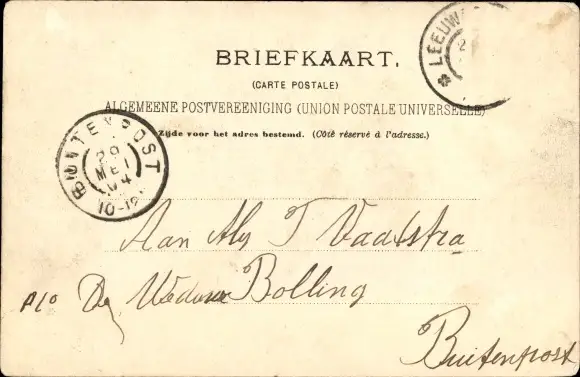 BRIEFKAART.
(CARTE POSTALE)
ALGEMEENE POSTVEREENIGING (UNION POSTALE UNIVERSELLE)
Zijde voor het adres bestemd. (Côté réservé à l'adresse.)
LEEUW
2
BUITENPOST
MEI
04
10-12
Aan T Vaatstra
De Weduwe Bolling
Buitenpost